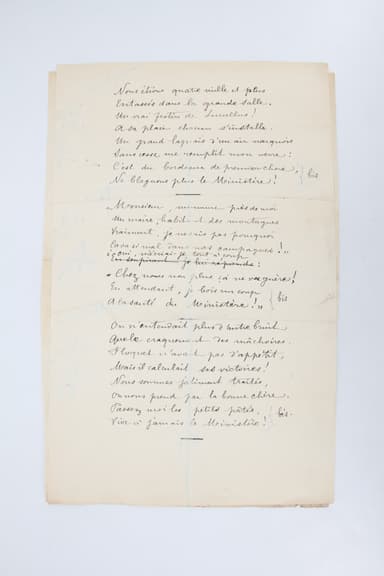 Nous étions quatre mille et plus
Entassés dans la grande salle.
Un vrai festin de Lucullus!
A sa place chacun s'installe.
Un grand laquais d'un air narquois
Sans cesse me remplit mon verre:
C'est du bordeaux de premier choix, } bis
Ne blaguons plus le Ministère!
« Monsieur, murmure près de moi
Un maire, habitant des montagnes
Vraiment, je ne sais pas pourquoi
Ça va si mal dans nos campagnes! »
« oui, je tout à coup
En soupirant je lui réponds:
« Chez nous non plus ça ne va guère!
En attendant, je bois un coup } bis
A la santé du Ministère! »
On n'entendait plus d'autre bruit
Que le craquement des mâchoires.
Floquet n'avait pas d'appétit,
Mais il calculait ses victoires!
Nous sommes joliment traités,
On nous prend par la bonne chère.
Passez moi les petits pâtés, } bis.
Vive à jamais le Ministère!